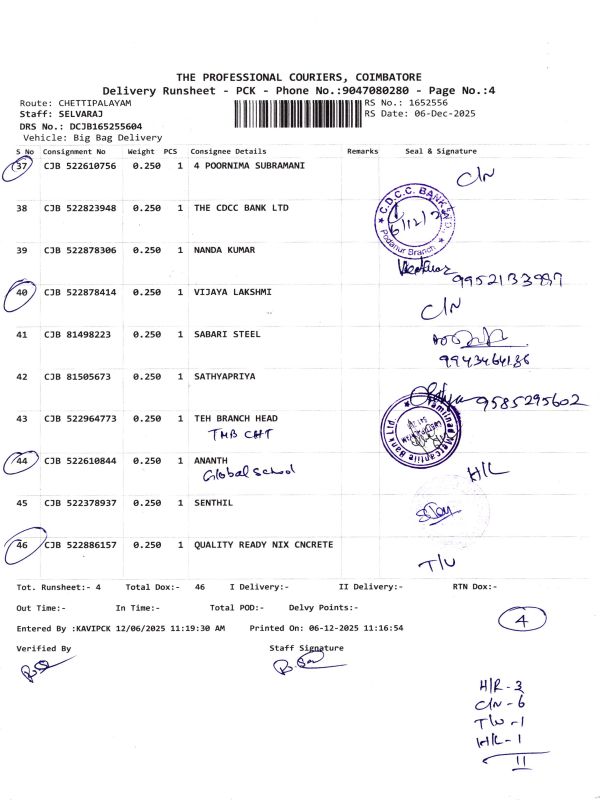 THE PROFESSIONAL COURIERS, COIMBATORE
Delivery Runsheet - PCK - Phone No.:9047080280 - Page No.:4
Route: CHETTIPALAYAM RS No.: 1652556
Staff: SELVARAJ RS Date: 06-Dec-2025
DRS No.: DCJB165255604
Vehicle: Big Bag Delivery
S No Consignment No Weight PCS Consignee Details Remarks Seal & Signature
37 CJB 522610756 0.250 1 4 POORNIMA SUBRAMANI C/N
38 CJB 522823948 0.250 1 THE CDCC BANK LTD
C.D.C.C. BANK
6/12/25
Podanur Branch
39 CJB 522878306 0.250 1 NANDA KUMAR
9952133987
40 CJB 522878414 0.250 1 VIJAYA LAKSHMI C/N
41 CJB 81498223 0.250 1 SABARI STEEL
9943464136
42 CJB 81505673 0.250 1 SATHYAPRIYA
Sathya 9585295602
43 CJB 522964773 0.250 1 TEH BRANCH HEAD
TMB CHT
Tamilnad Mercantile Bank Ltd.
44 CJB 522610844 0.250 1 ANANTH H/L
Global School
45 CJB 522378937 0.250 1 SENTHIL
46 CJB 522886157 0.250 1 QUALITY READY NIX CNCRETE T/W
Tot. Runsheet:- 4 Total Dox:- 46 I Delivery:- II Delivery:- RTN Dox:-
Out Time:- In Time:- Total POD:- Delvy Points:-
Entered By :KAVIPCK 12/06/2025 11:19:30 AM Printed On: 06-12-2025 11:16:54
4
Verified By Staff Signature
H/R - 3
C/N - 6
T/W - 1
H/L - 1
11